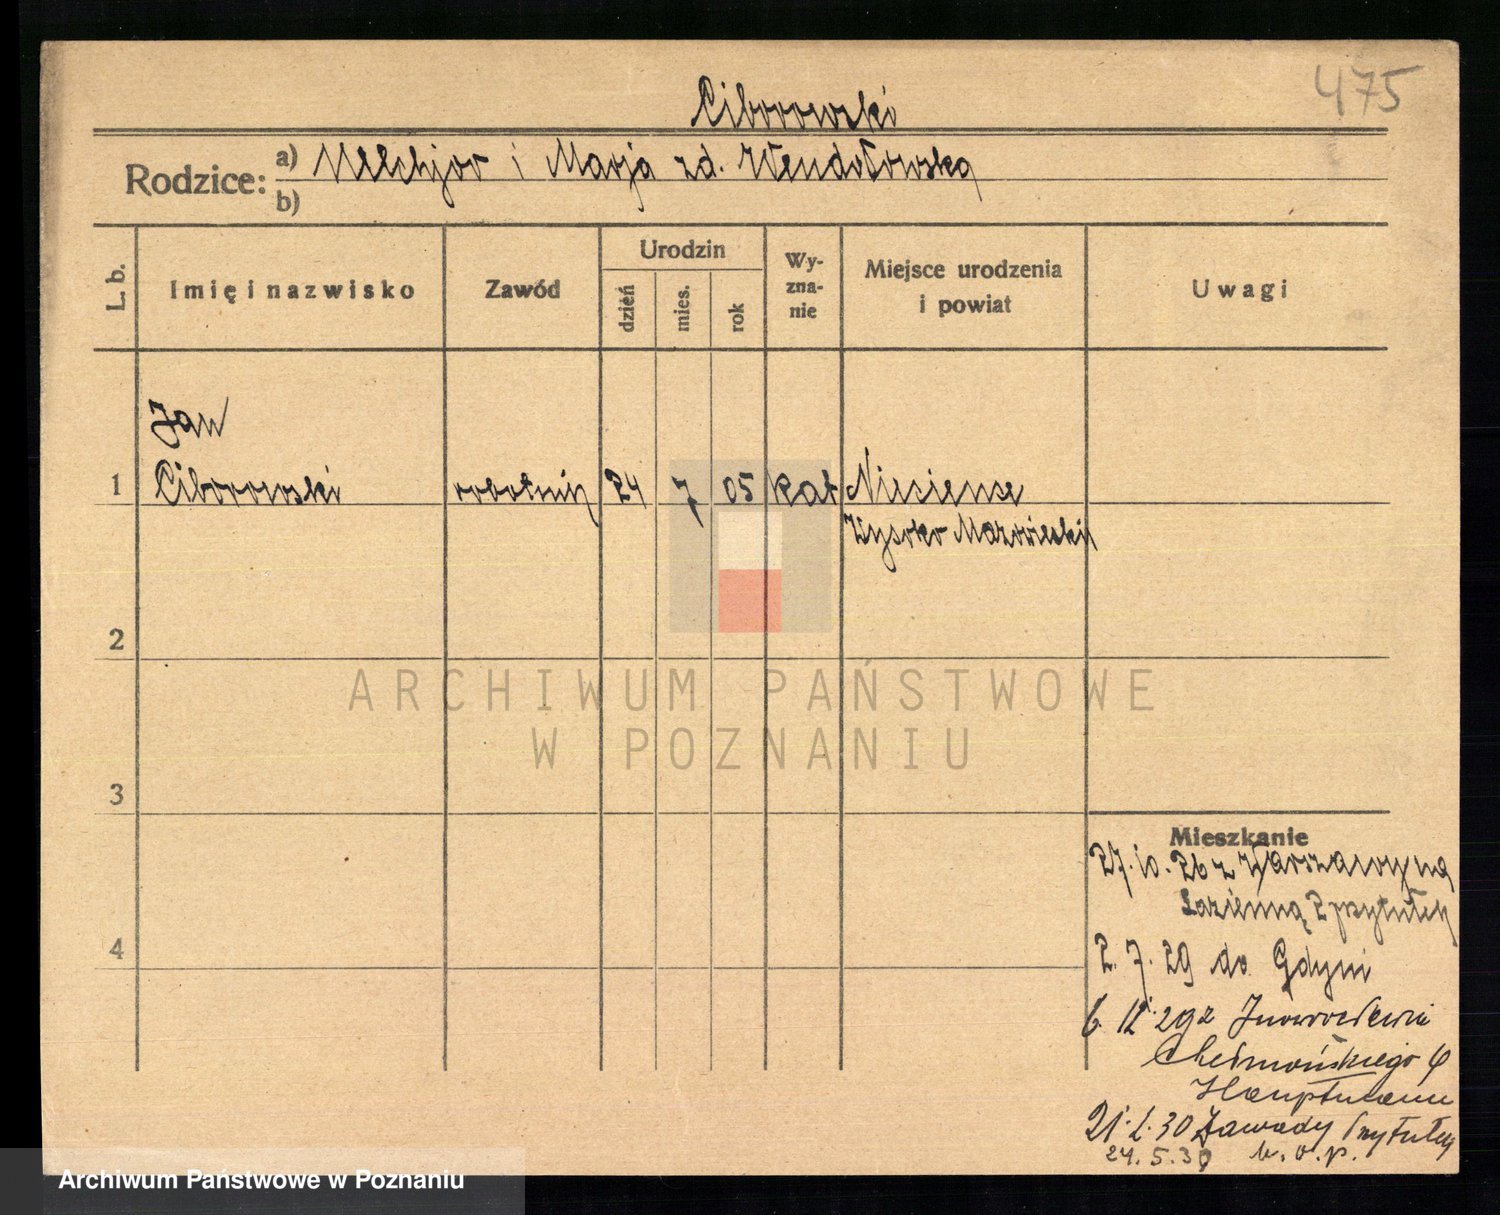 475
Ciborowski
Rodzice: a) Melchjor i Marja zd. Wendołowska
b)
L. b.
Imię i nazwisko
Zawód
Urodzin
dzień
mies.
rok
Wy-
zna-
nie
Miejsce urodzenia
i powiat
Uwagi
Jan
1 Ciborowski robotnik 24 7 05 kat Nieciensce
Wysoko Mazowieckij
2
3
4
Mieszkanie
27.10.26 z Warszawy na
Łazienną 2 przytułek
2.7.29 do Gdyni
6.12.29 z Inowrocławia
Chełmońskiego 4
Hauptmann
21.1.30 Zawady Przytułek
24.5.30 b.o.p.
ARCHIWUM PAŃSTWOWE
W POZNANIU
Archiwum Państwowe w Poznaniu